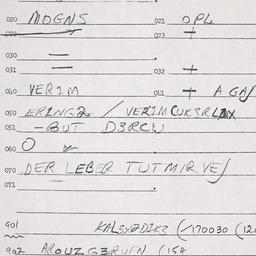 020 MOGNS 021 OPL
022 023 +
030 —
031 — 032 +
040 VERIM 041 + A GAS
050 ERINGZ / VERIMCUK3RL
051 -BUT D3RCW
060 O
070 DER LEBER TUT MIR VES
071
901 KAL3YZDIK3 (/170030 (12
902 AROUZG3RUFN (154